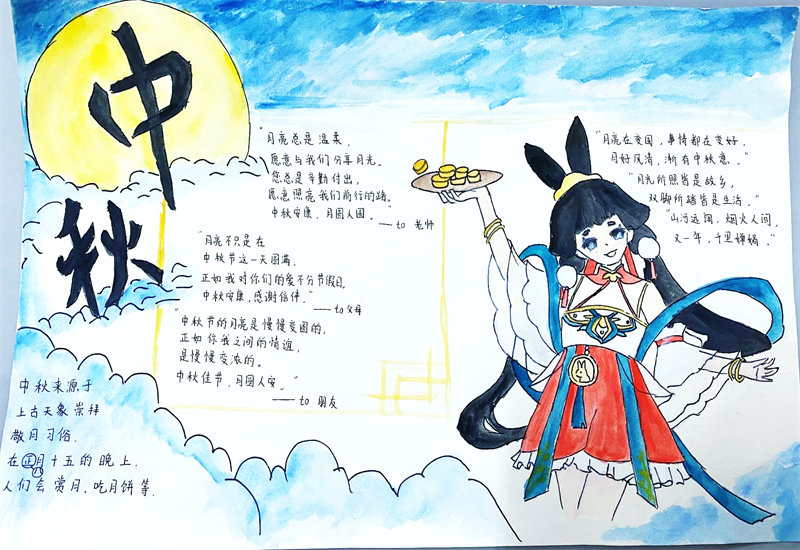 中
秋
"月亮总是温柔，
愿意与我们分享月光。
您总是辛勤付出，
愿意照亮我们前行的路。
中秋安康，月圆人圆。"
——to 老师
"月亮不只是在
中秋节这一天圆满，
正如我对你们的爱不分节假日。
中秋安康，感谢陪伴。"
——to父母
"中秋节的月亮是慢慢变圆的，
正如你我之间的情谊，
是慢慢变浓的。
中秋佳节，月圆人安。"
——to 朋友
"月亮在变圆，事情都在变好。
月好风清，渐有中秋意。"
"月光所照皆是故乡，
双脚所踏皆是生活。"
"山河远阔，烟火人间，
又一年，千里婵娟。"
中秋来源于
上古天象崇拜
敬月习俗.
在 八月十五的晚上.
人们会赏月.吃月饼等.